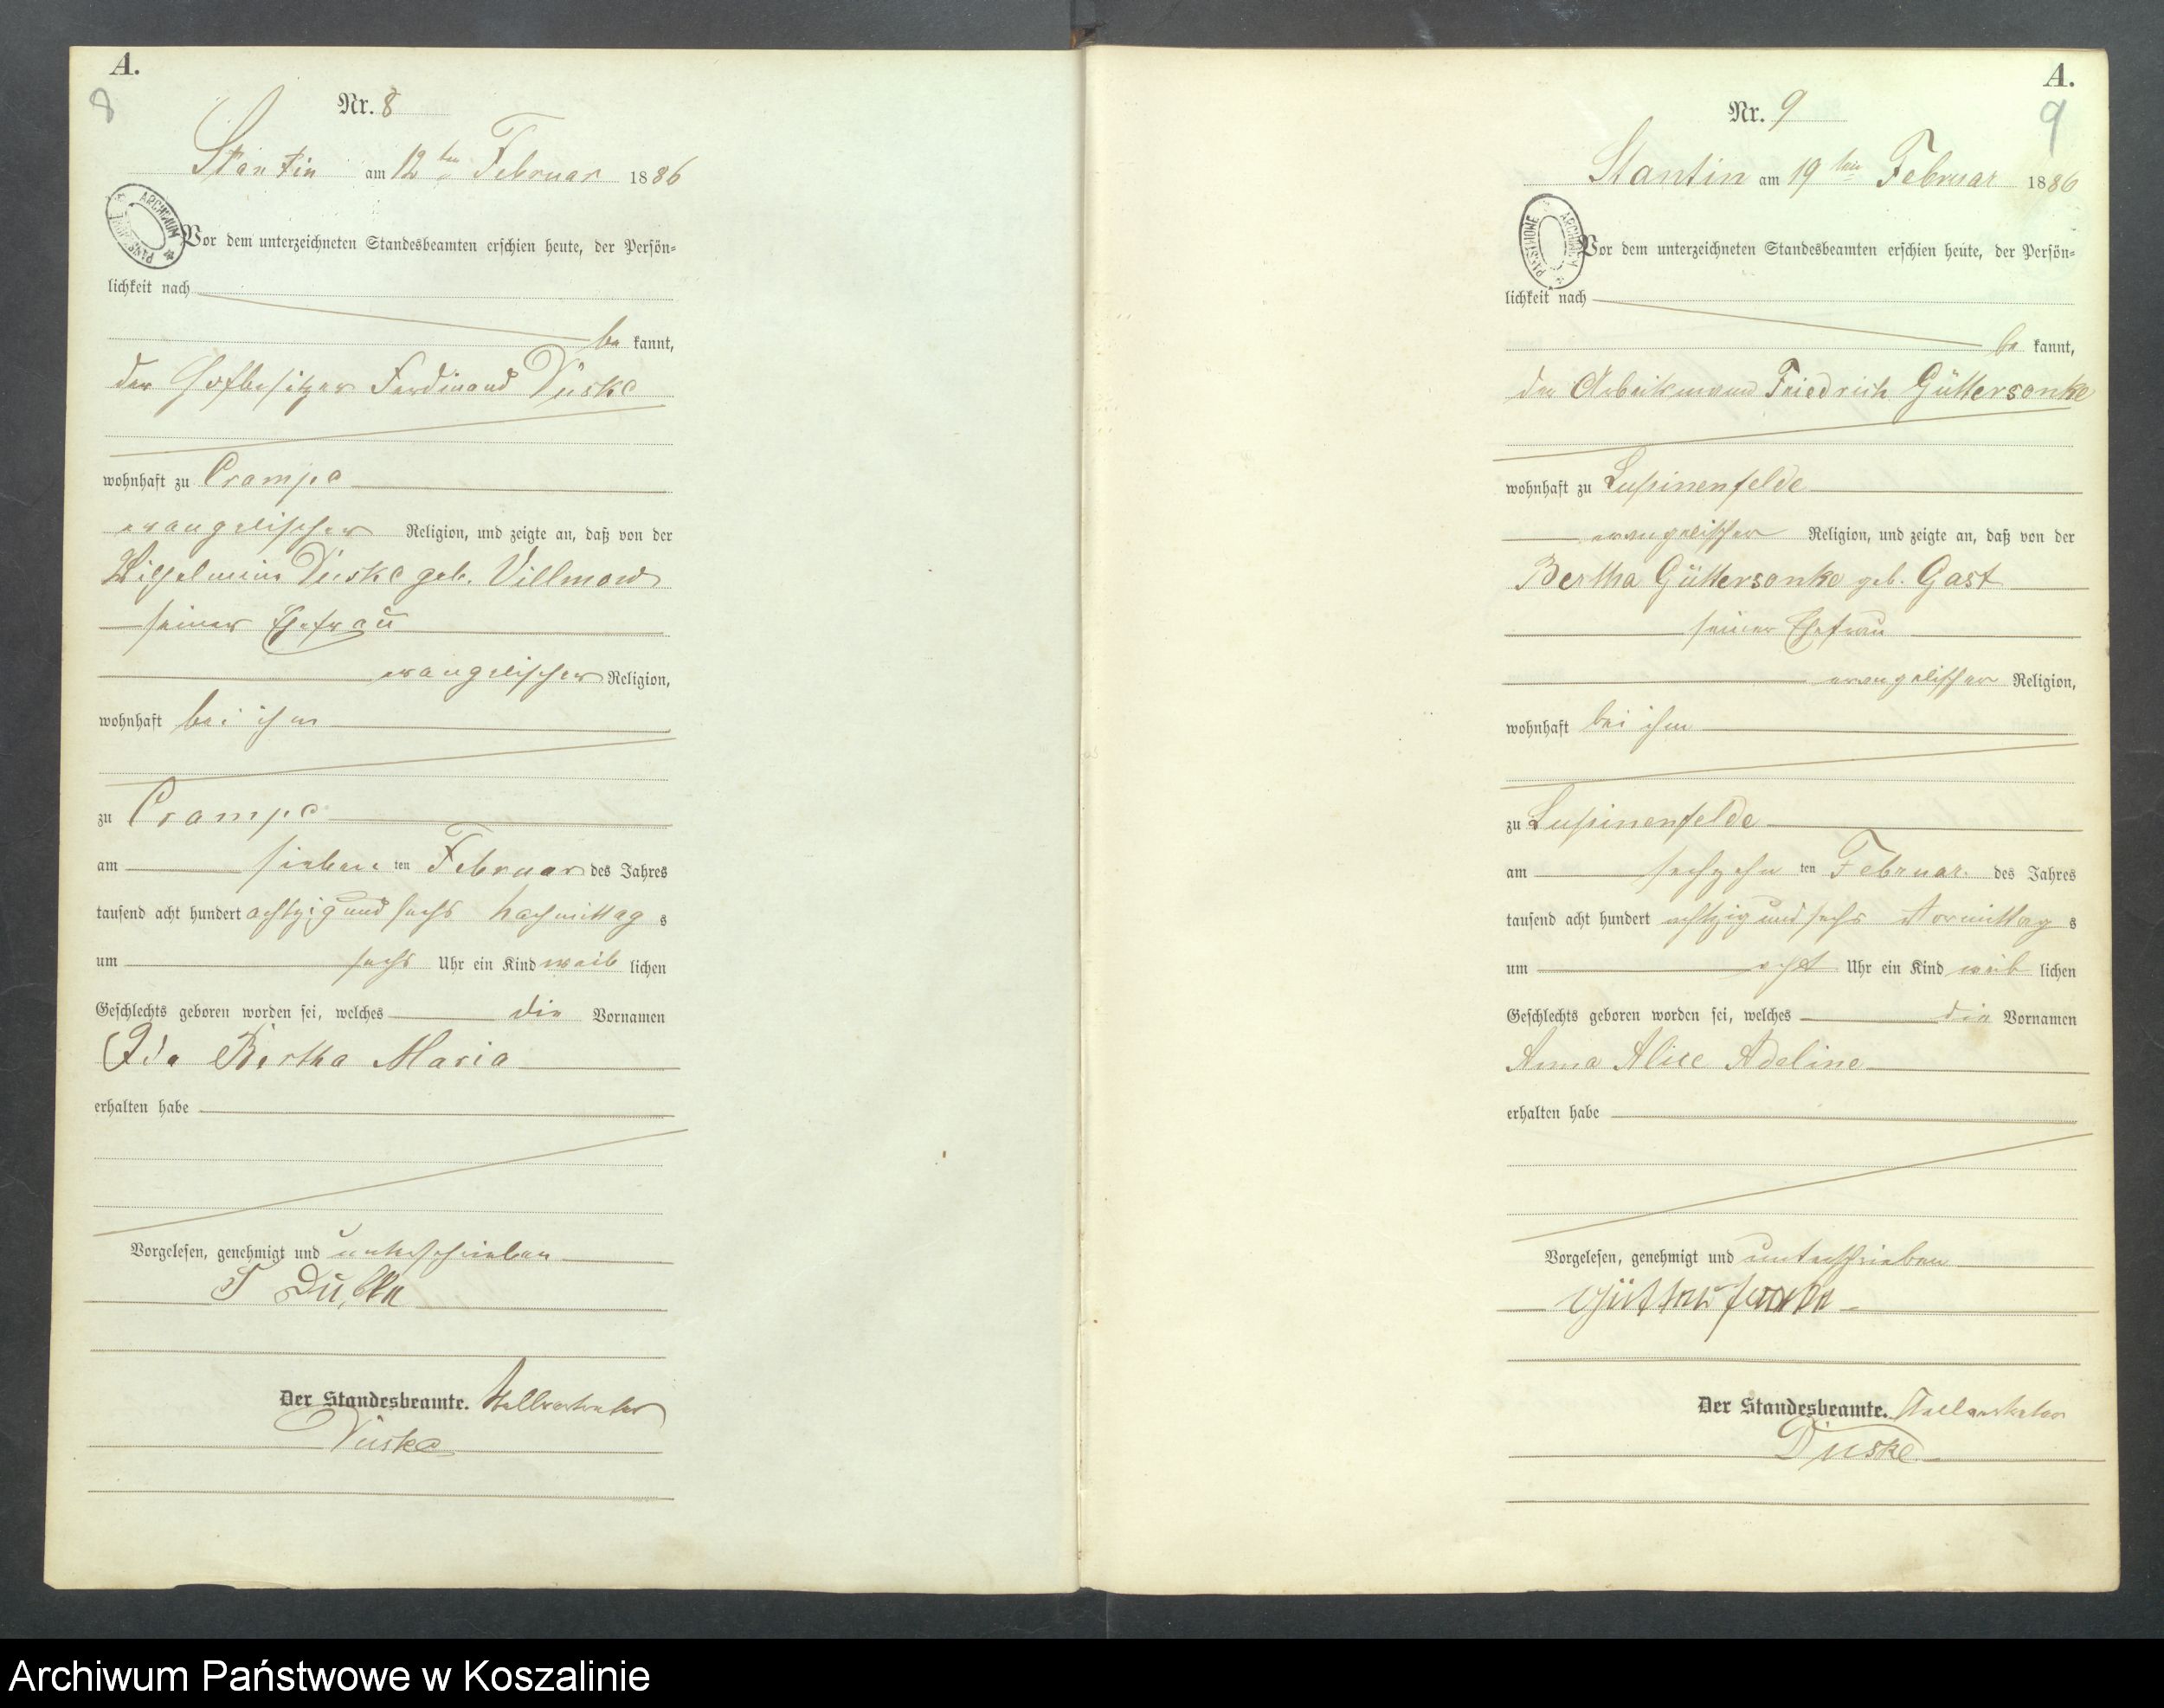 A.
8
Nr. 8
Stantin am 12ten Februar 1886
Vor dem unterzeichneten Standesbeamten erschien heute, der Persön-
lichkeit nach
be kannt,
der Hofbesitzer Ferdinand Düske
wohnhaft zu Crampe
evangelischer Religion, und zeigte an, daß von der
Wilhelmine Düske geb. Villmow
seiner Ehefrau
evangelischer Religion,
wohnhaft bei ihm
zu Crampe
am sieben ten Februar des Jahres
tausend acht hundert achtzig und sechs Nachmittag s
um sechs Uhr ein Kind weib lichen
Geschlechts geboren worden sei, welches die Vornamen
Ida Bertha Maria
erhalten habe
Vorgelesen, genehmigt und unterschrieben
F Düske
Der Standesbeamte. Stellvertreter
Düske
A.
9
Nr. 9
Stantin am 19ten Februar 1886
ARCHIWUM PAŃSTWOWE
Vor dem unterzeichneten Standesbeamten erschien heute, der Persön-
lichkeit nach
be kannt,
der Arbeitmann Friedrich Güttersonke
wohnhaft zu Lupinenfelde
evangelischer Religion, und zeigte an, daß von der
Bertha Güttersonke geb. Gast
seiner Ehefrau
evangelischer Religion,
wohnhaft bei ihm
zu Lupinenfelde
am sechzehn ten Februar des Jahres
tausend acht hundert achtzig und sechs Vormittag s
um acht Uhr ein Kind weib lichen
Geschlechts geboren worden sei, welches die Vornamen
Anna Alice Adeline
erhalten habe
Vorgelesen, genehmigt und unterschrieben
Güttersonke
Der Standesbeamte. Stellvertreter
Düske
Archiwum Państwowe w Koszalinie